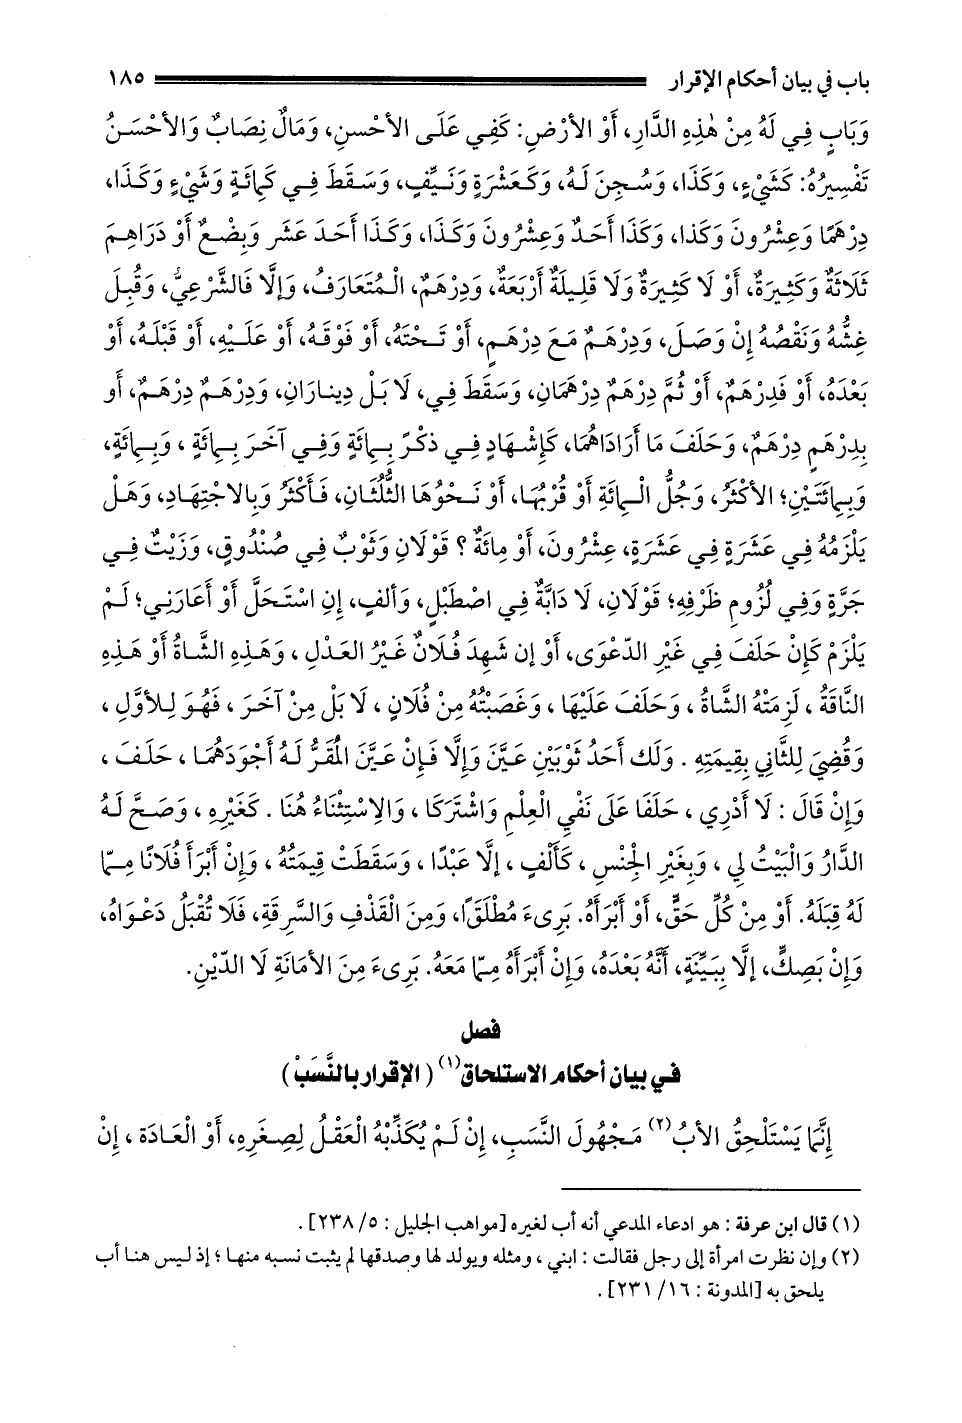 باب في بيان أحكام الإقرار ١٨٥
وَبَابٍ فِي لَهُ مِنْ هٰذِهِ الدَّارِ، أَوْ الأَرْضِ: كَفِي عَلَى الأَحْسنِ، وَمَالٌ نِصَابٌ وَالأَحْسَنُ
تَفْسِيرُهُ: كَشَيْءٍ، وَكَذَا، وَسُجِنَ لَهُ، وَكَعَشْرَةٍ وَنَيِّفٍ، وَسَقَطَ فِي كَمِائَةٍ وَشَيْءٍ وَكَذَا،
دِرْهَمًا وَعِشْرُونَ وَكَذا، وَكَذَا أَحَدٌ وَعِشْرُونَ وَكَذَا، وَكَذَا أَحَدَ عَشَر وَبِضْعٌ أَوْ دَرَاهِمَ
ثَلَاثَةٌ وَكَثِيرَةٌ، أَوْ لَا كَثِيرَةٌ وَلَا قَلِيلَةٌ أَرْبَعَةٌ، وَدِرْهَمٌ، الْمُتَعَارَفُ، وَإِلَّا فَالشَّرْعِيُّ، وَقُبِلَ
غِشُّهُ وَنَقْصُهُ إِنْ وَصَلَ، وَدِرْهَمٌ مَعَ دِرْهَمٍ، أَوْ تَحْتَهُ، أَوْ فَوْقَهُ، أَو عَلَيْهِ، أَوْ قَبْلَهُ، أَوْ
بَعْدَهُ، أَوْ فَدِرْهَمٌ، أَوْ ثُمَّ دِرْهَمٌ دِرْهَمَان، وَسَقَطَ فِي، لَا بَلْ دِينارَانِ، وَدِرْهَمٌ دِرْهَمٌ، أَو
بِدِرْهَمٍ دِرْهَمٌ، وَحَلَفَ مَا أَرَادَاهُمَا، كَإِشْهَادٍ فِي ذكْرٍ بِمِائَةٍ وَفِي آخَرَ بِمِائَةٍ ، وَبِمِائَةٍ،
وَبِمِائَتَيْنِ؛ الأَكْثَرُ، وَجُلُّ الْمِائَةِ أَوْ قُرْبُهَا، أَوْ نَحْوُهَا الثُّلُثَانِ، فَأَكْثَرُ وَبِالاجْتِهَادِ، وَهَلْ
يَلْزَمُهُ فِي عَشَرَةٍ فِي عَشَرَةٍ، عِشْرُونَ، أَوْ مِائَةٌ ؟ قَوْلَانِ وَثَوْبٌ فِي صُنْدُوقٍ، وَزَيْتٌ فِي
جَرَّةٍ وَفِي لُزُومِ ظَرْفِهِ؛ قَوْلَان، لَا دَابَّةٌ فِي اصْطَبْلٍ، وَألفٍ، إِنِ اسْتَحَلَّ أَوْ أَعَارَنِي؛ لَمْ
يَلْزَمْ كَإِنْ حَلَفَ فِي غَيْرِ الدّعْوَى، أَوْ إن شَهِدَ فُلَانٌ غَيْرُ العَدْلِ ، وَهَذِهِ الشَّاةُ أَوْ هَذِهِ
النَّاقَةُ ، لَزِمَتْهُ الشَّاةُ ، وَحَلَفَ عَلَيْهَا ، وَغَصَبْتُهُ مِنْ فُلَانٍ ، لَا بَلْ مِنْ آخَرَ ، فَهُوَ لِلأوَّلِ ،
وَقُضِيَ لِلثَّانِي بِقِيمَتِهِ . وَلَك أَحَدُ ثَوْبَيْنِ عَيَّنَ وَإِلَّا فَإِنْ عَيَّنَ المُقَرُّ لَهُ أَجْوَدَهُمَا ، حَلَفَ ،
وَإِنْ قَالَ : لَا أَدْرِي ، حَلَفَا عَلَى نَفْيِ الْعِلْمِ وَاشْتَركَا ، وَالاِسْتِثْنَاءُ هُنَا . كَغَيْرِهِ ، وَصَحَّ لَهُ
الدَّارُ وَالْبَيْتُ لِي ، وَبِغَيْرِ الجِنْسِ ، كَأَلْفٍ ، إلَّا عَبْدًا ، وَسَقَطَتْ قِيمَتُهُ ، وَإِنْ أَبْرَأَ فُلَانًا مِمَّا
لَهُ قِبَلَهُ. أَوْ مِنْ كُلِّ حَقٍّ، أَوْ أَبْرَأَهُ. بَرِىءَ مُطْلَقًا، وَمِنَ الْقَذْفِ وَالسَّرِقَةِ، فَلَا تُقْبَلُ دَعْوَاهُ،
وَإِنْ بَصكٍّ، إلَّا بِبَيِّنَةٍ، أَنَّهُ بَعْدَهُ، وَإِنْ أَبْرَأَهُ مِمّا مَعَهُ. بَرِىءَ مِنَ الأَمَانَةِ لَا الدّيْنِ.
فصل
في بيان أحكام الاستلحاق(١) (الإقرار بالنَّسَبْ)
إِنَّمَا يَسْتَلْحِقُ الأَبُ(٢) مَجْهُولَ النَّسَبِ، إِنْ لَمْ يُكَذِّبْهُ الْعَقْلُ لِصِغَرِهِ، أَوْ الْعَادَة ، إِنْ
(١) قال ابن عرفة : هو ادعاء المدعي أنه أب لغيره [مواهب الجليل : ٥/ ٢٣٨] .
(٢) وإن نظرت امرأة إلى رجل فقالت : ابني ، ومثله ويولد لها وصدقها لم يثبت نسبه منها ؛ إذ ليس هنا أب
يلحق به [المدونة : ١٦/ ٢٣١] .